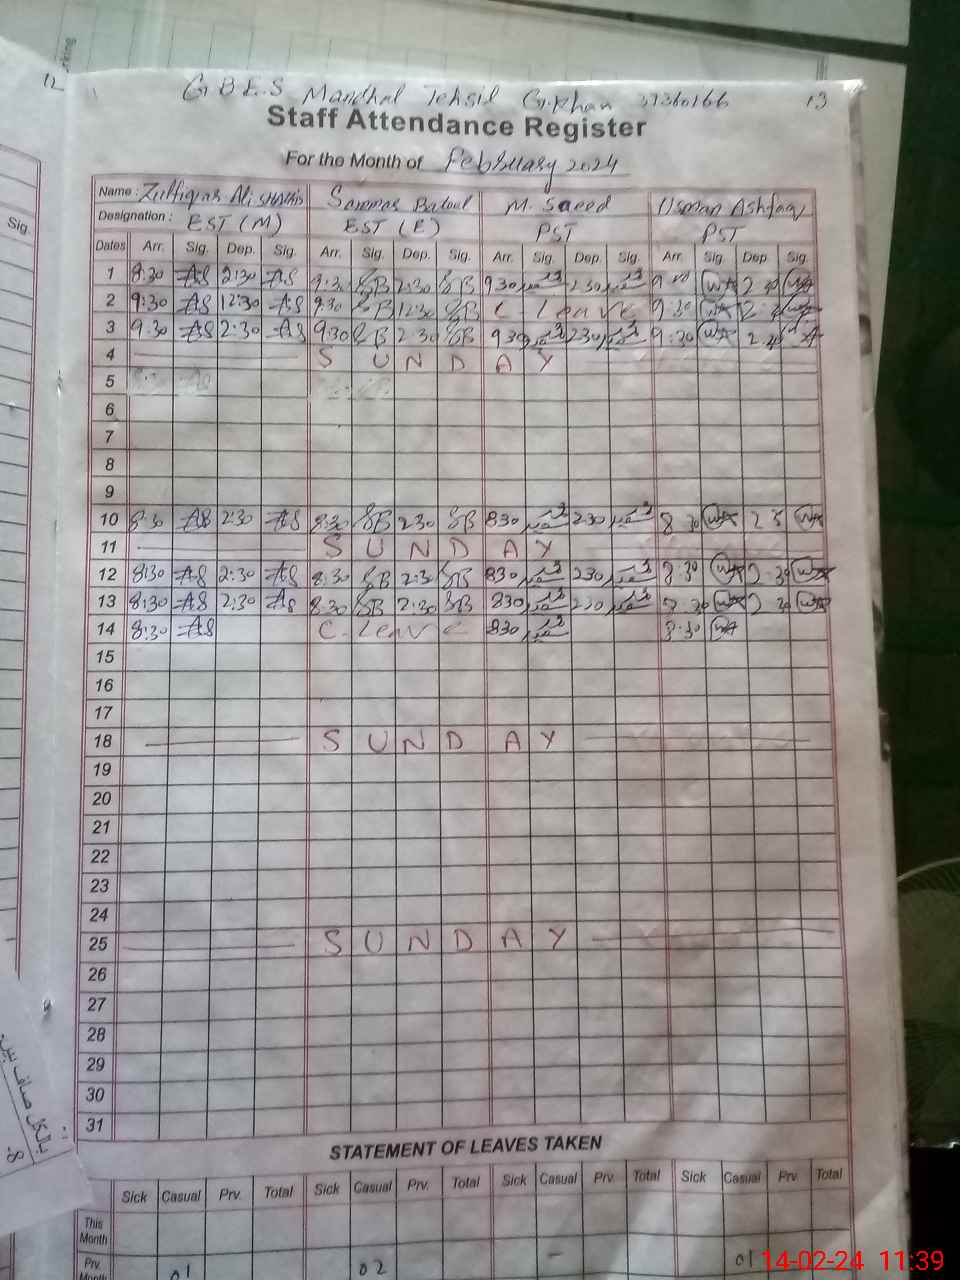 12
G.B.E.S Mandhal Tehsil G.Khan 37360166 13
Staff Attendance Register
For the Month of February 2024
Name : Zulfiqar Ali Saremas Batool M. Saeed Usman Ashfaq
Designation : EST (M) EST (E) PST PST
Sig.
Dates Arr. Sig. Dep. Sig. Arr. Sig. Dep. Sig. Arr. Sig. Dep. Sig. Arr. Sig. Dep Sig.
1 8:30 AS 2:30 AS 9:30 SB 2:30 SB 930 230
2 9:30 AS 12:30 AS 9:30 SB 12:30 SB C-Leave 9:30
3 9:30 AS 2:30 AS 9:30 SB 2:30 SB 930 230 9:30
4 SUNDAY
5
6
7
8
9
10 8:30 AS 2:30 AS 8:30 SB 2:30 SB 830 230 8 30
11 SUNDAY
12 8:30 AS 2:30 AS 8:30 SB 2:3 SB 830 230 8:30 2:30
13 8:30 AS 2:30 AS 8:30 SB 2:30 SB 830 230 30 2 30
14 8:30 AS C-Leave 830 8:30
15
16
17
18 SUNDAY
19
20
21
22
23
24
25 SUNDAY
26
27
28
29
30
31
بالکل صاف ہیں
-8
STATEMENT OF LEAVES TAKEN
Sick Casual Prv. Total Sick Casual Prv. Total Sick Casual Prv. Total Sick Casual Prv. Total
This Month
Prv. Month 01 02 - 01
14-02-24 11:39